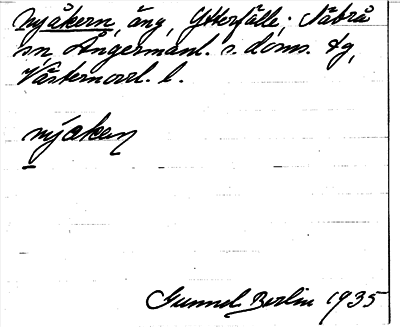 Nyåkern, äng, Ytterfälle, Nåbrå
sn, Ångermanl. s. doms. tg,
Västernorrl. l.
nýåkeṇ
Gunnel Berlin 1935